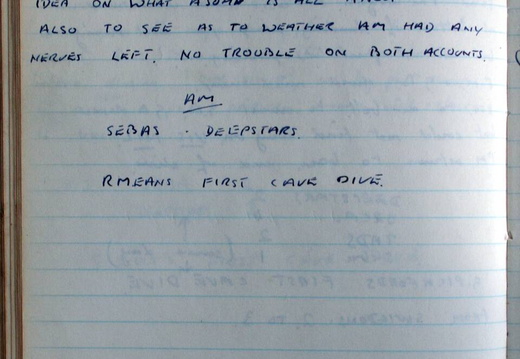 IDEA ON WHAT A SUMP IS ALL
ALSO TO SEE AS TO WEATHER AM HAD ANY
NERVES LEFT. NO TROUBLE ON BOTH ACCOUNTS.
AM
SEBAS . DEEPSTARS.
RMEANS FIRST CAVE DIVE.